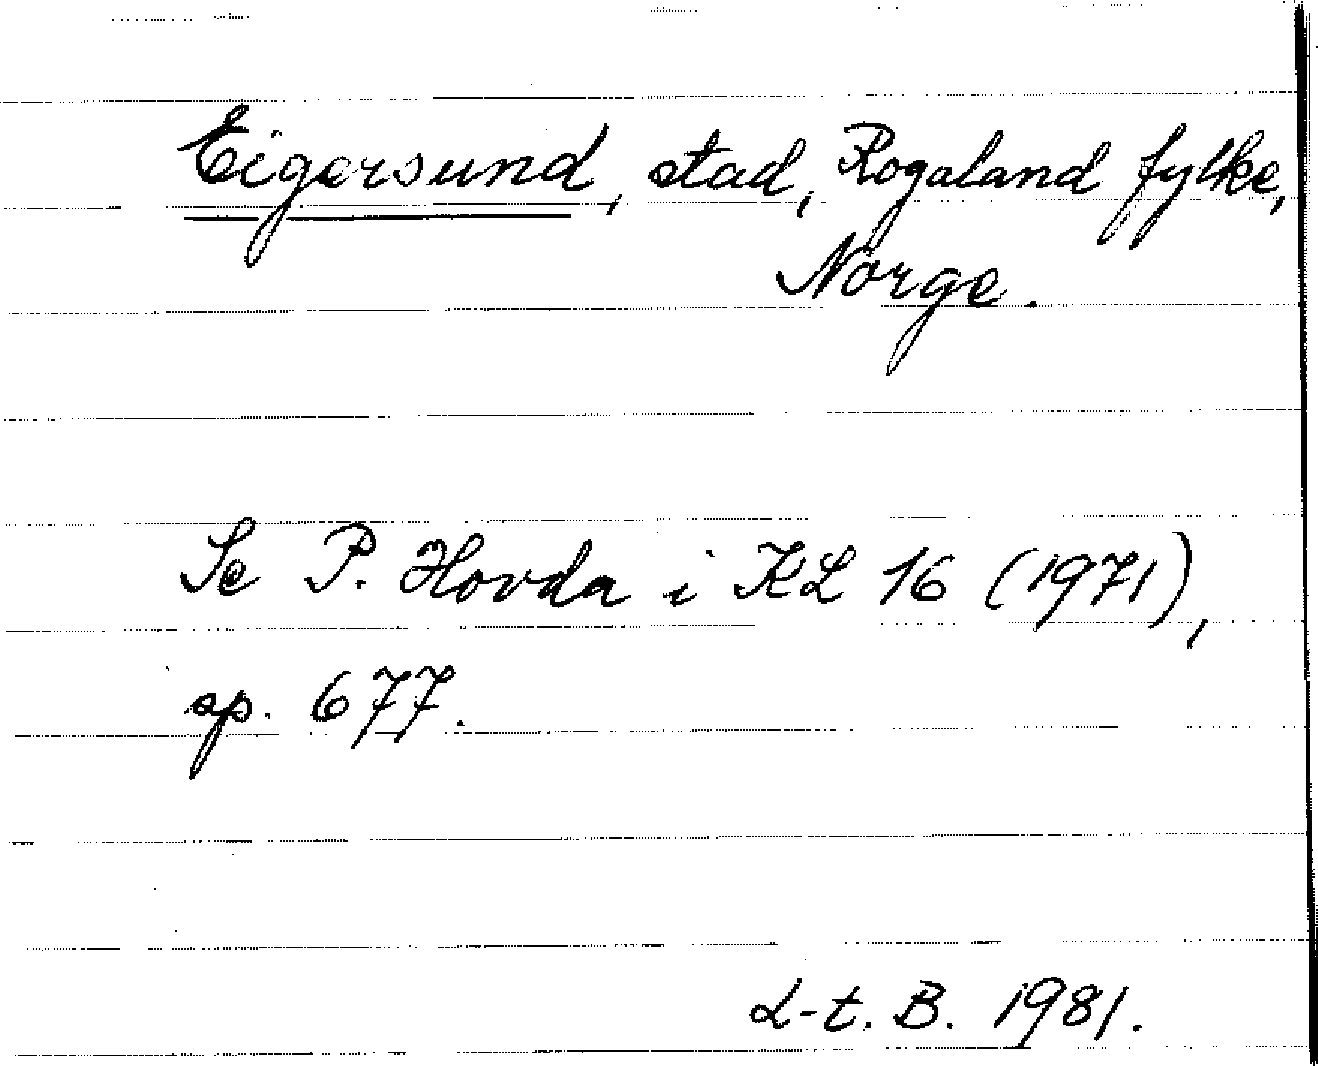 Eigersund, stad, Rogaland fylke,
Norge.
Se P. Hovda i KL 16 (1971),
sp. 677.
L-t. B. 1981.